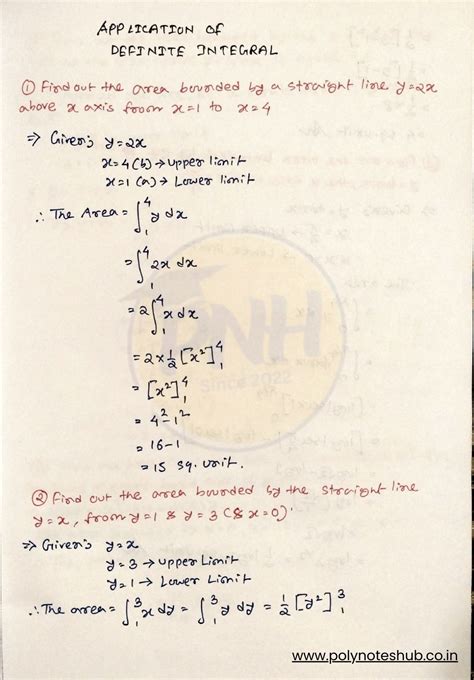 APPLICATION OF
DEFINITE INTEGRAL
① Find out the area bounded by a straight line y=2x
above x axis from x=1 to x=4
⇒ Given; y=2x
x=4(b)→upper limit
x=1(a)→Lower limit
∴ The Area = ∫₁⁴ y dx
= ∫₁⁴ 2x dx
= 2∫₁⁴ x dx
= 2×½[x²]₁⁴
= [x²]₁⁴
= 4²-1²
= 16-1
= 15 sq. unit.
PNH
Since 2022
② Find out the area bounded by the straight line
y=x, from y=1 & y=3 (& x=0).
⇒ Given; y=x
y=3→upper Limit
y=1→Lower Limit
∴ The area = ∫₁³ x dy = ∫₁³ y dy = ½[y²]₁³
www.polynoteshub.co.in